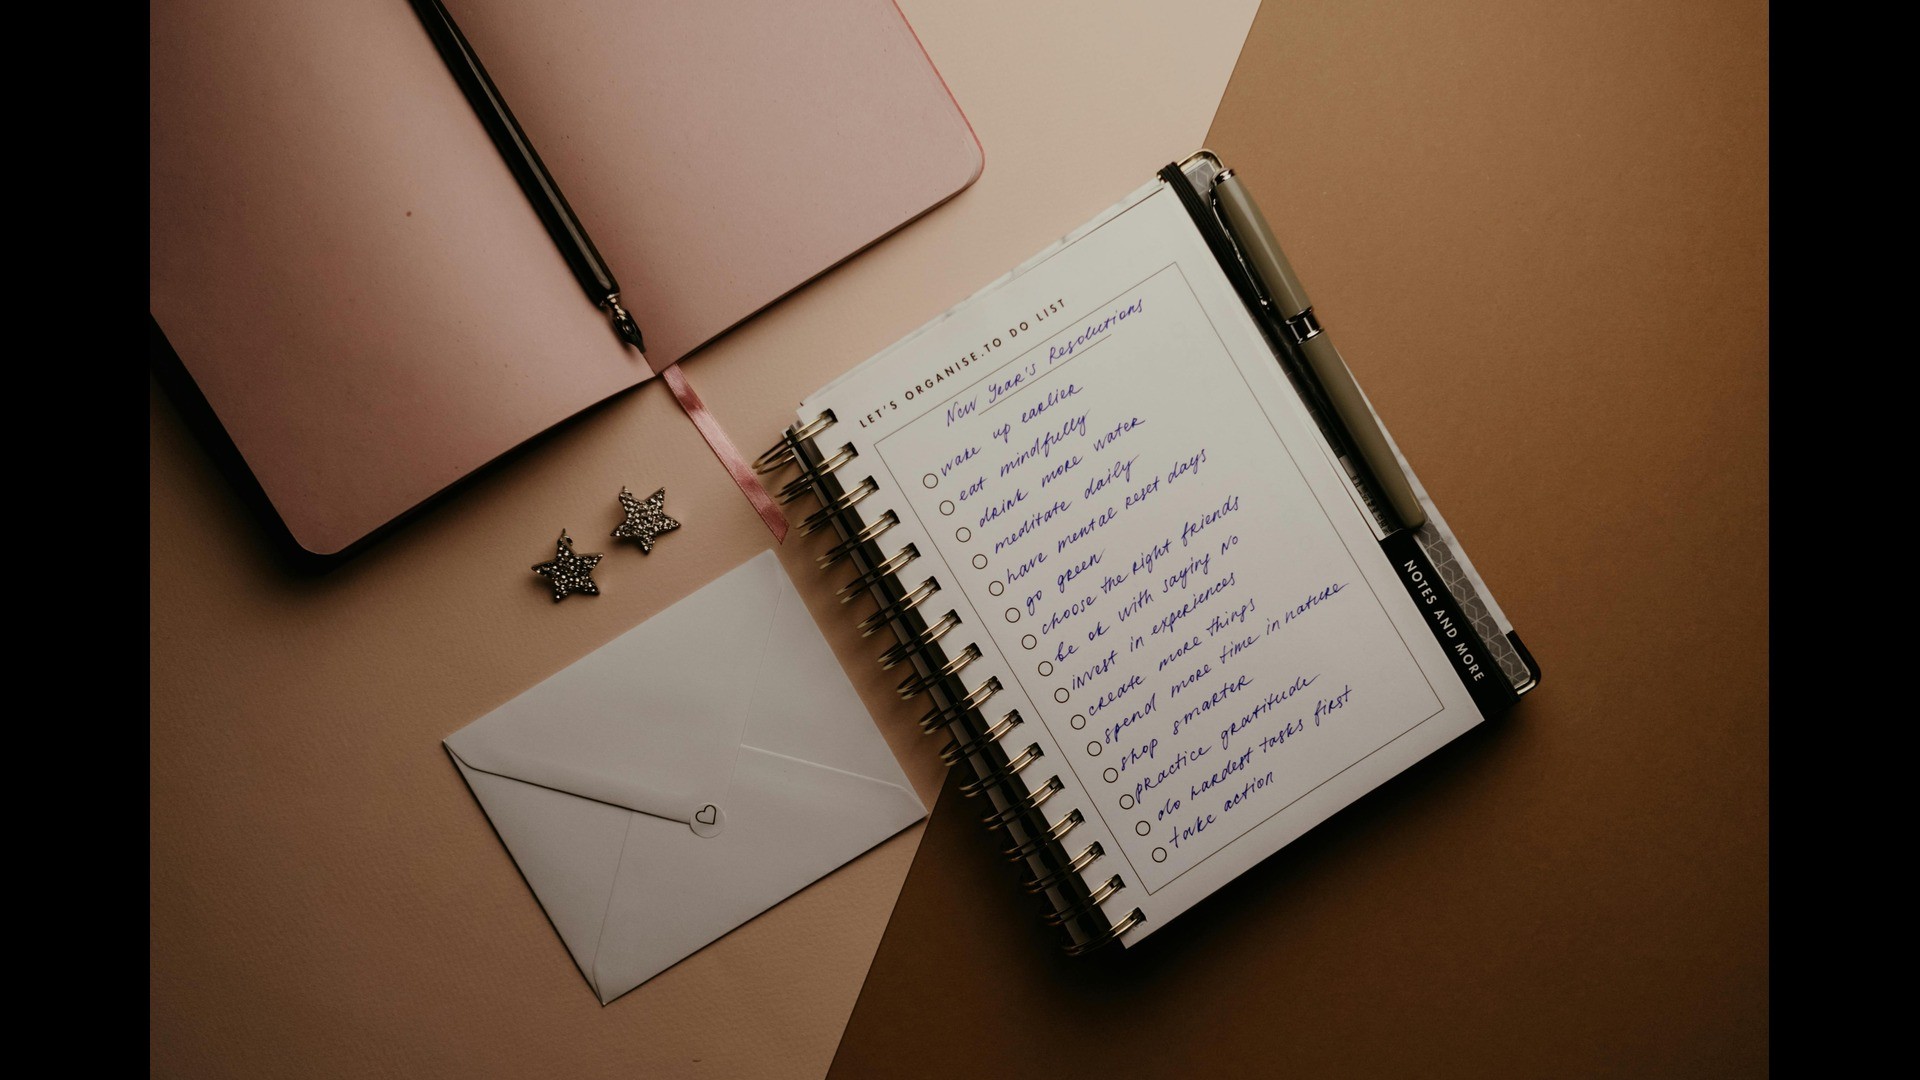 LET'S ORGANISE.TO DO LIST
New Year's Resolutions
wake up earlier
eat mindfully
drink more water
meditate daily
have mental reset days
go green
choose the right friends
be ok with saying NO
invest in experiences
create more things
spend more time in nature
shop smarter
practice gratitude
do hardest tasks first
take action
NOTES AND MORE